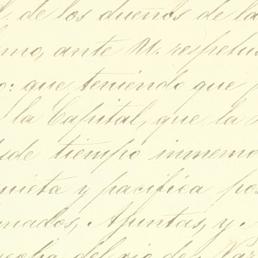 de los dueños de la
mo, ante U. respetu
o: que teniendo que
la Capital, que la
de tiempo inmemo
quieta y pacífica pos
nados, Apuntas, y
del rio de